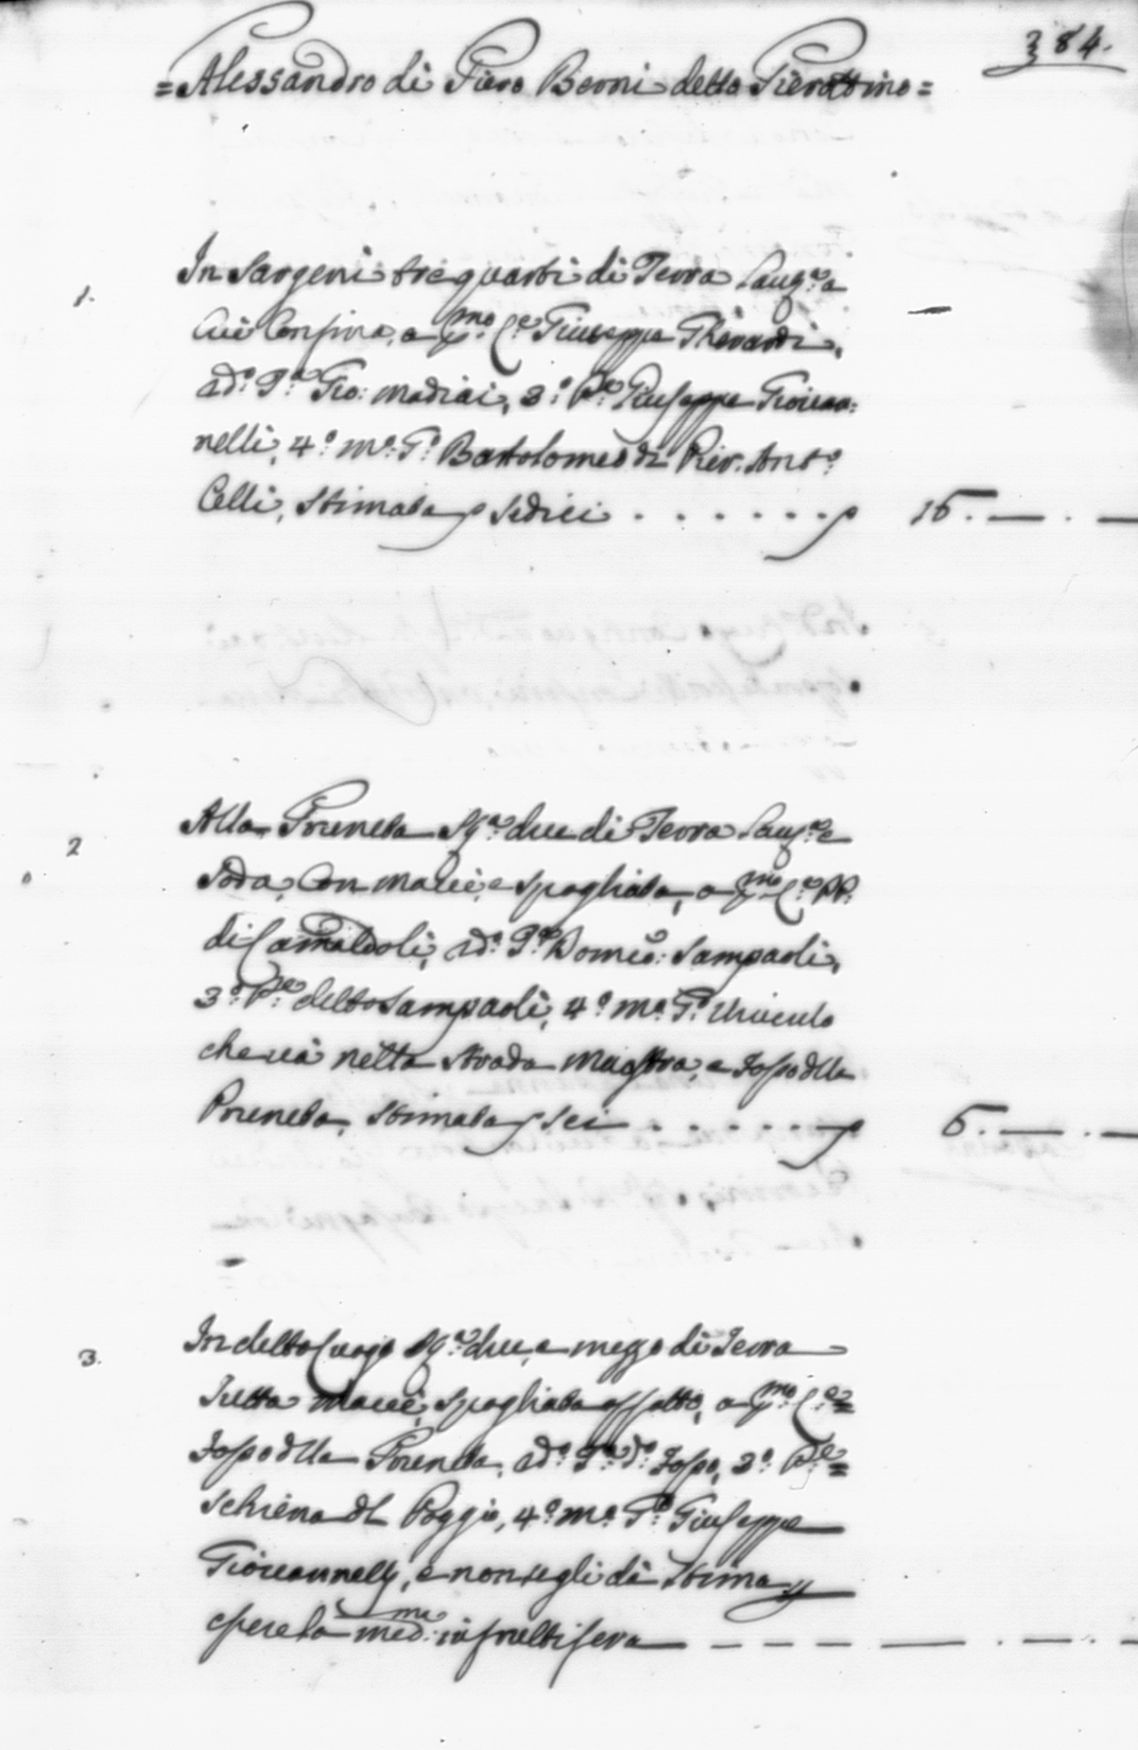 384.
= Alessandro di Piero Berni detto Pierottino =
1. In Sargeni tre quarti di Terra Lau:ª a
Cui Confina, a p:mo L:º Giuseppe Gherardi,
2d:º P:ª Gio: Madiai, 3:º P:e Giuseppe Giovan:
nelli, 4:º m:º P:º Bartolomeo di Pier: Ant:º
Celli, Stimata p Sedici . . . . . . . p 16. — . —
2 Alla Pruneta St:ª due di Terra Lau:ª e
Soda, Con Macie, e Spogliata, a p:mo L:º PP.
di Camaldoli, 2d:º P:ª Domco: Sampaoli,
3:º P:e detto Sampaoli, 4:º m:º P:º Viuculo
che và nella Strada Maestra, e Fosso dlla
Pruneta, Stimata p Sei . . . . . . p 6. — . —
3. In detto Luogo St:ª due, e mezzo di Terra
Tutta Macie, Spogliata affatto, a p:mo L:º =
Fosso dlla Pruneta, 2d:º P:ª d:º Fosso, 3:º P:e =
Schiena dl Poggio, 4:º m:º P:º Giuseppe
Giovannelli, e non segli dà Stima p
essere la med:ma infruttifera — — — — — . — . —